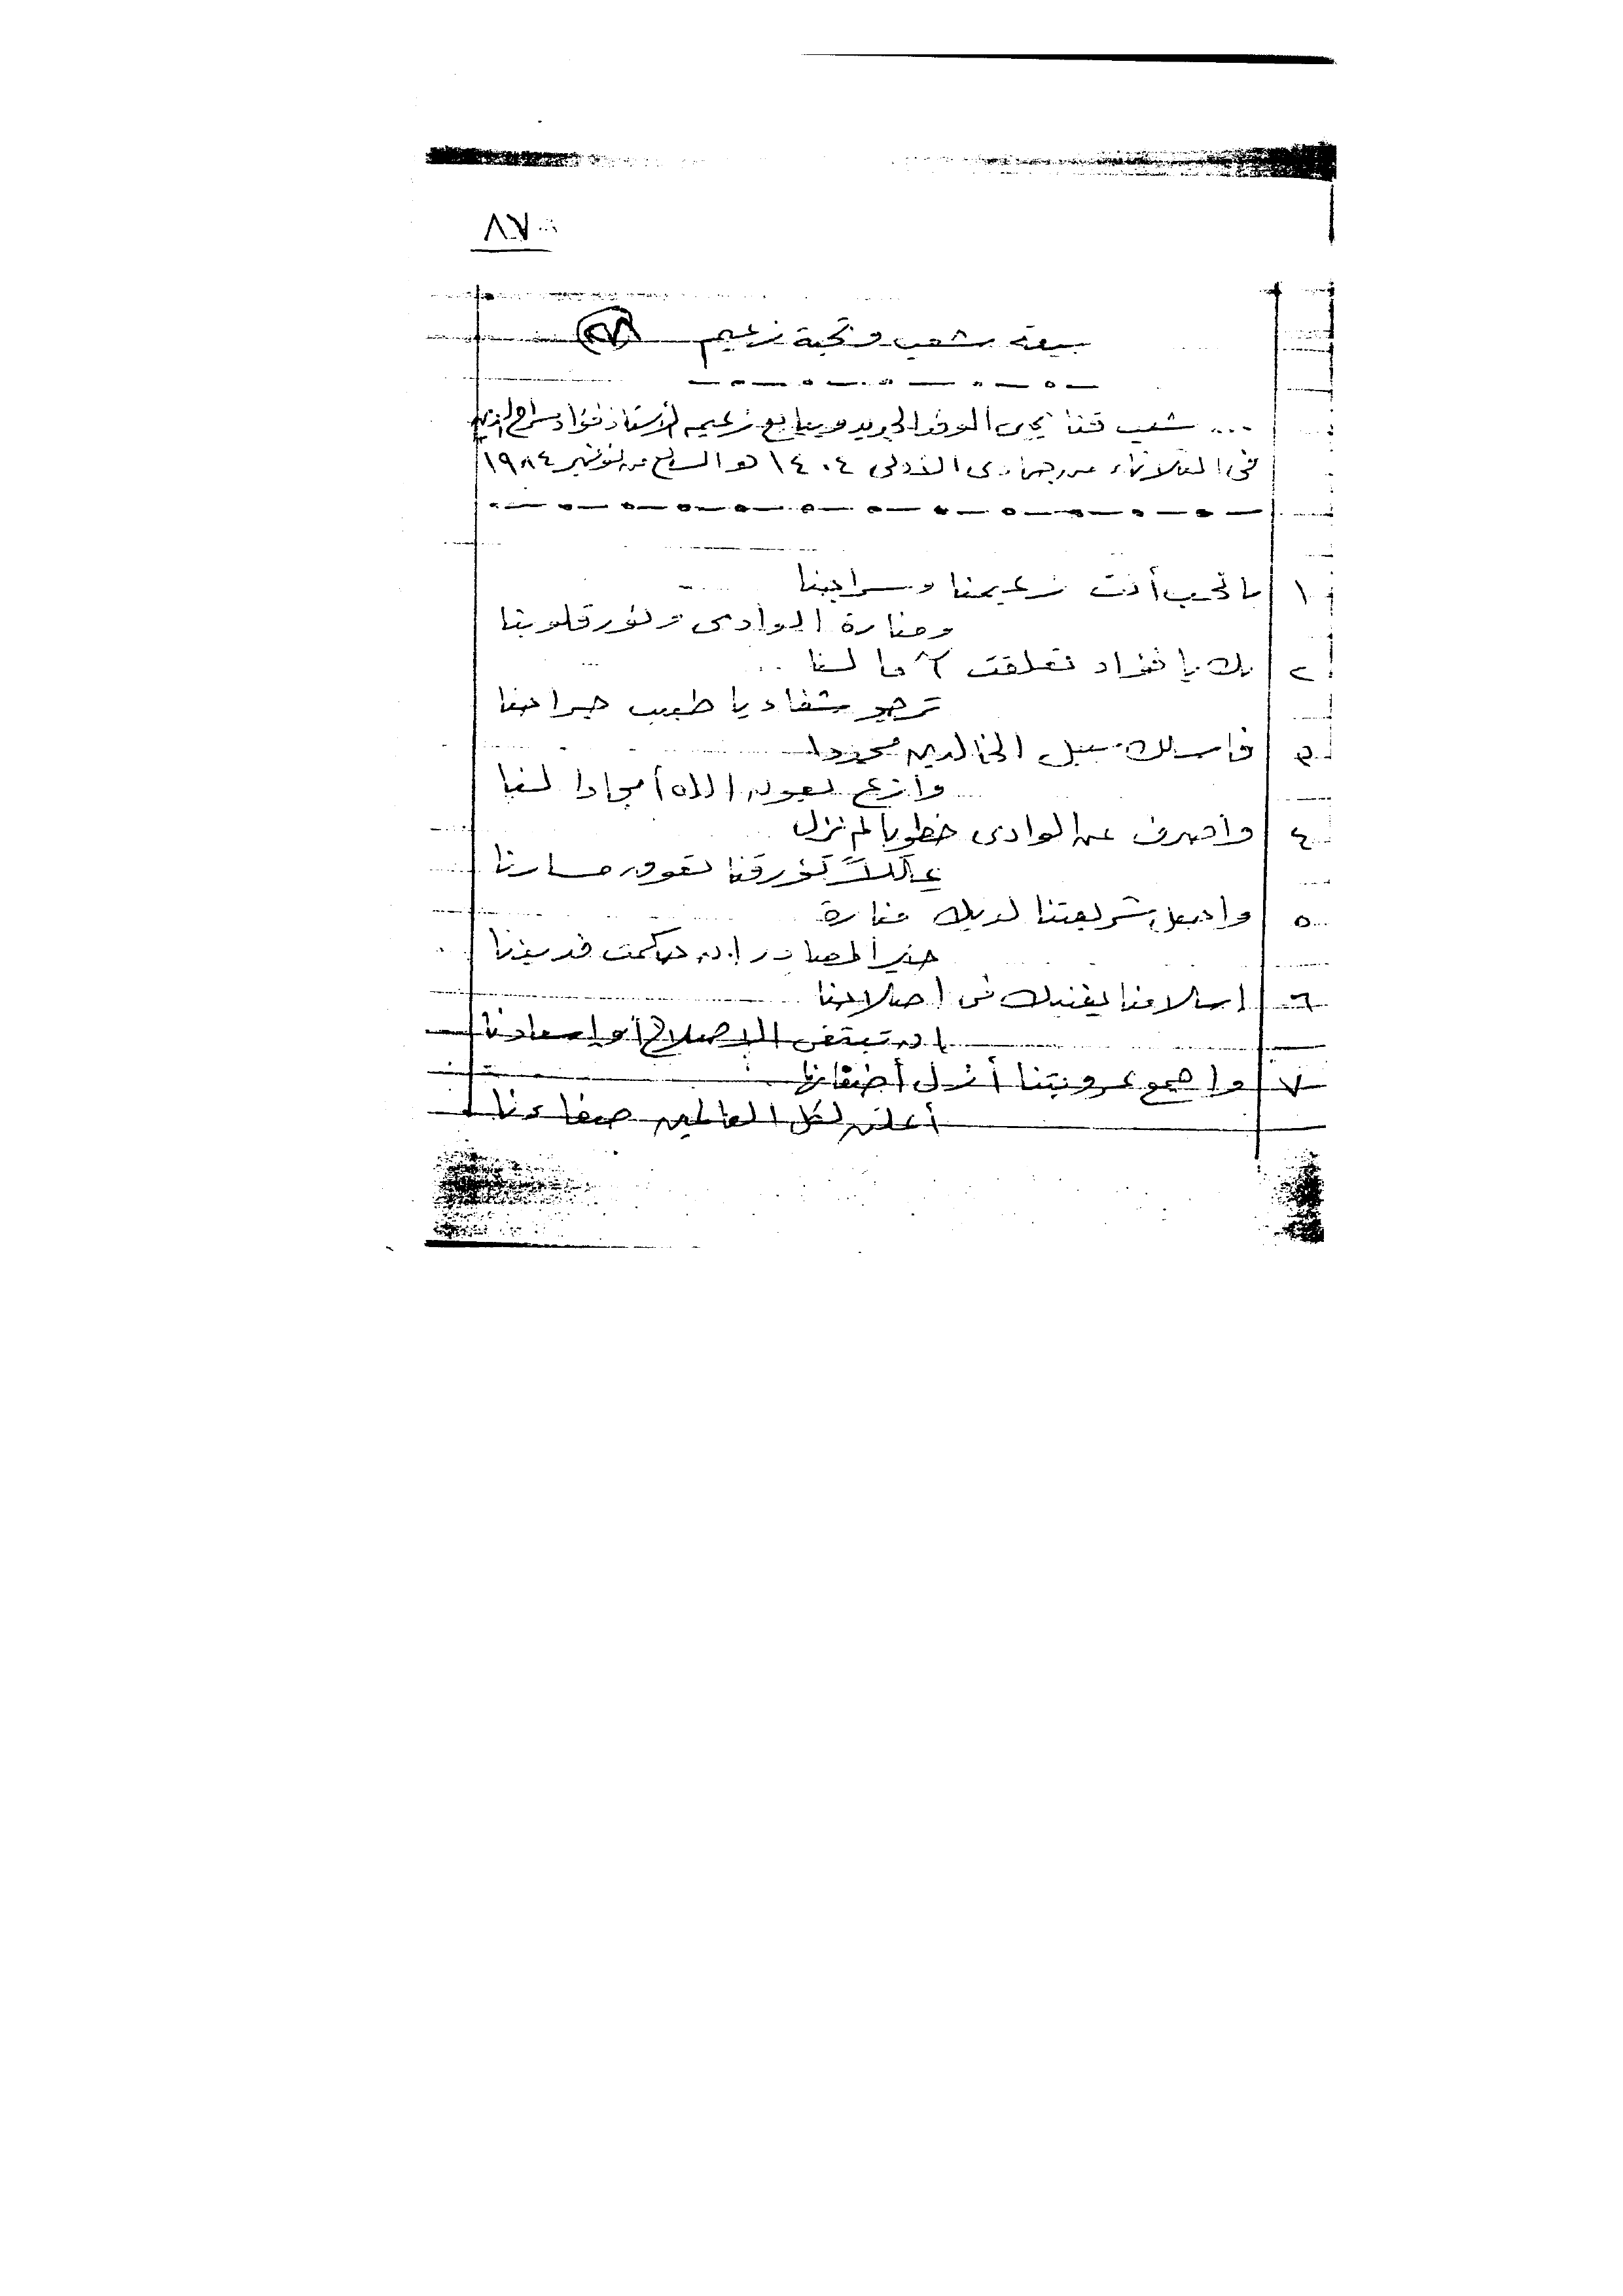 ٨٧
بيعة شعب وتحية زعيم
... شعب قنا يحيى الوفد الجديد ويبايع زعيمه الأستاذ فؤاد سراج الدين
فى الثلاثاء من جمادى الأولى ١٤٠٤ هـ السابع من نوفمبر ١٩٨٤
١ بالحب أنت زعيمنا وسراجنا
ومنارة الوادى ونور قلوبنا
٢ بك يا فؤاد تعلقت آمالنا
ترجو شفاء يا طبيب جراحنا
٣ فاسلك سبيل الخالدين مجددا
وازرع بعون الله أمجادا لنا
٤ واصرف عن الوادى خطوبا لم تزل
تؤرقنا تعوق مسارنا
٥ واجعل شريعتنا لديك منارة
خير المصادر إن حكمت فديننا
٦ إسلامنا يغنيك فى إصلاحنا
إن تبتغى الإصلاح أو إسعادنا
٧ واجمع عروبتنا أزل أضغانها
أعلن لكل العالمين صفاءنا